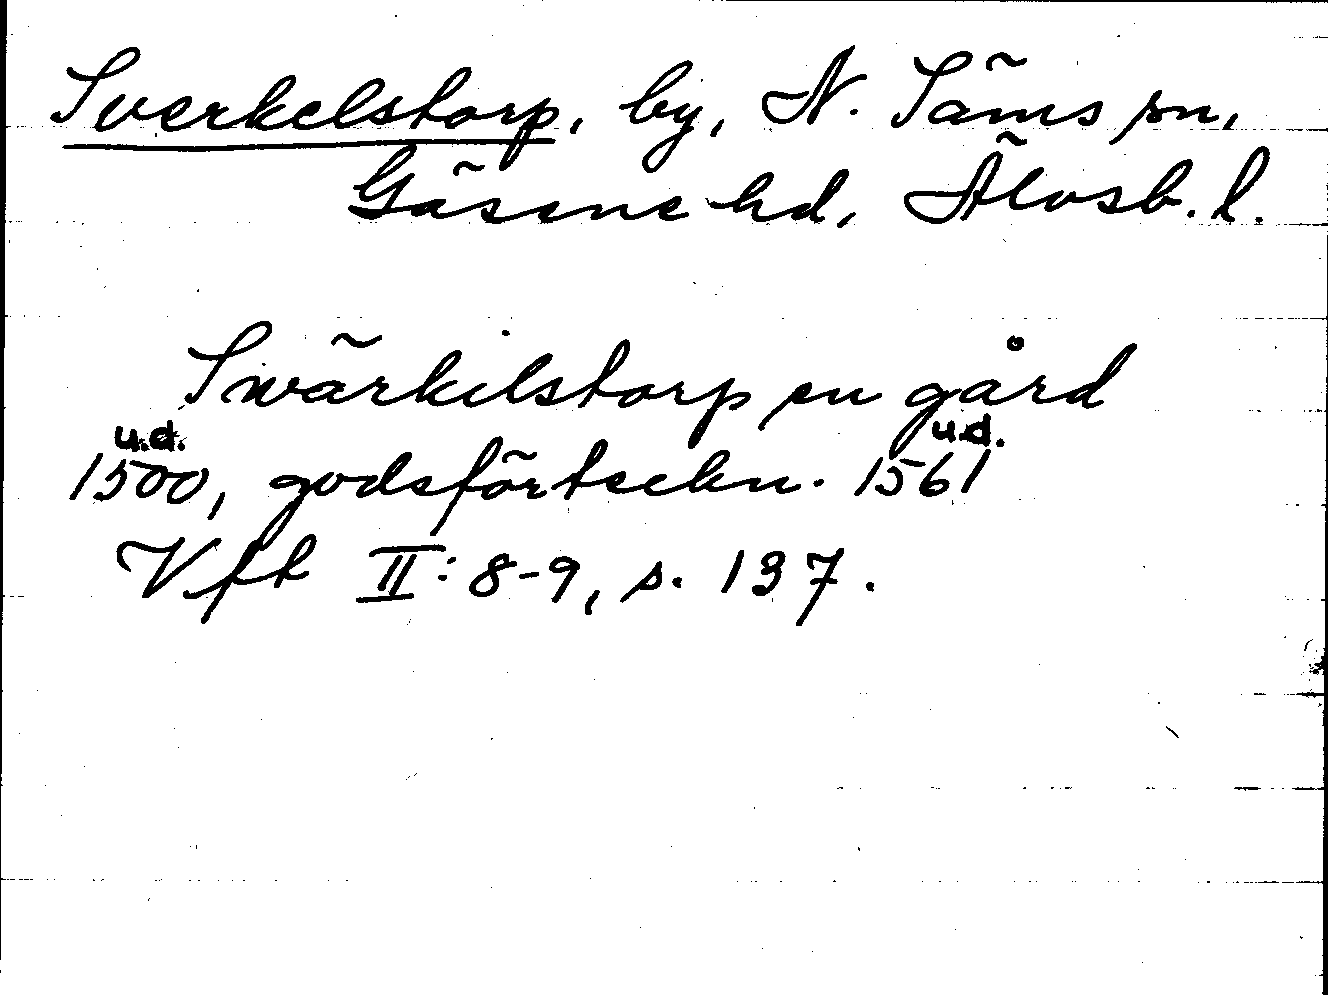 Sverkelstorp, by, N. Säms sn,
Gäsene hd, Älvsb. l.
Swärkilstorp en gård
u.d. u.d.
1500, godsförteckn. 1561
Vft II: 8-9, s. 137.